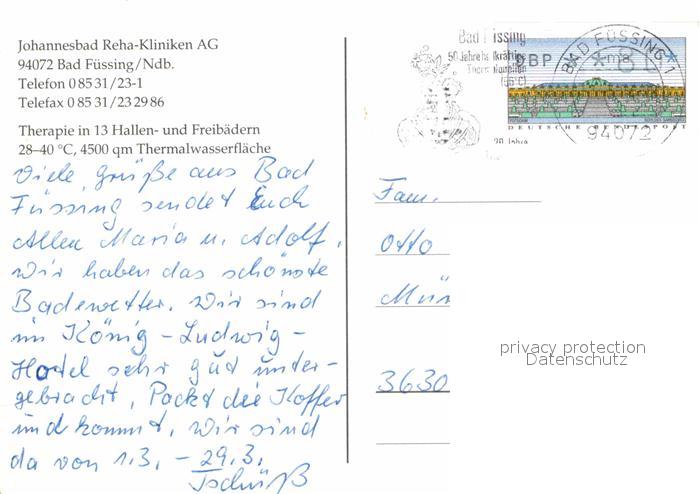 Johannesbad Reha-Kliniken AG
94072 Bad Füssing/Ndb.
Telefon 0 85 31/23-1
Telefax 0 85 31/23 29 86
Therapie in 13 Hallen- und Freibädern
28–40 °C, 4500 qm Thermalwasserfläche
Viele Grüße aus Bad
Füssing sendet Euch
Allen Maria u. Adolf.
Wir haben das schönste
Badewetter. Wir sind
im König-Ludwig-
Hotel sehr gut unter-
gebracht. Packt die Koffer
und kommt. Wir sind
da von 1.3. – 29.3.
Tschüß
Bad Füssing
50 Jahre heilkräftige
(56°C)
DBP
BAD FÜSSING 1
94072
DEUTSCHE BUNDESPOST
20 Jahre
Fam.
Otto
Mün
3630
privacy protection
Datenschutz